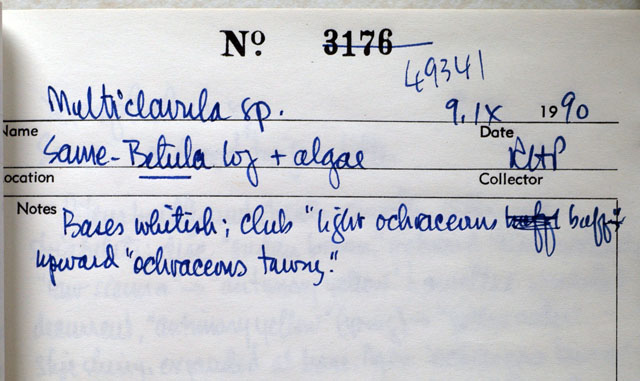 Nº 3176
49341
Multiclavula sp. 9.IX 1990
Name Date
Same - Betula log + algae RHP
ocation Collector
Notes Bases whitish; club "light ochraceous buff buff"
upward "ochraceous tawny."